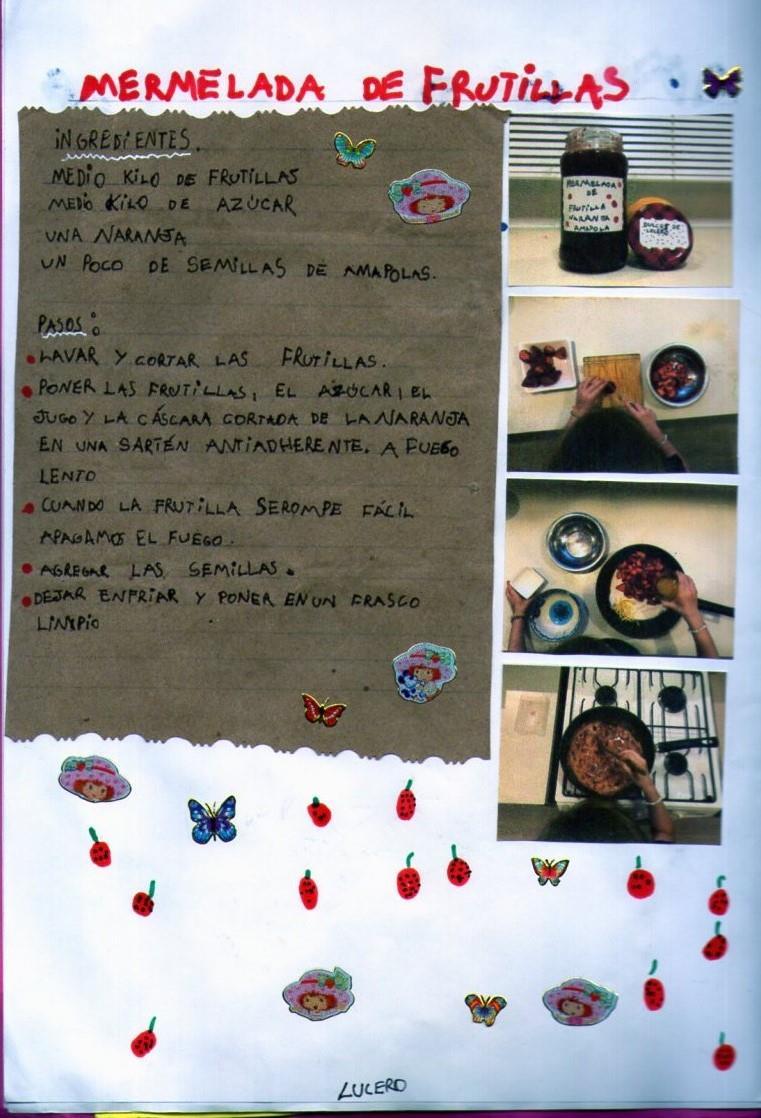 MERMELADA DE FRUTILLAS
INGREDIENTES.
MEDIO KILO DE FRUTILLAS
MEDIO KILO DE AZÚCAR
UNA NARANJA
UN POCO DE SEMILLAS DE AMAPOLAS.
PASOS:
LAVAR Y CORTAR LAS FRUTILLAS.
PONER LAS FRUTILLAS, EL AZÚCAR, EL
JUGO Y LA CÁSCARA CORTADA DE LA NARANJA
EN UNA SARTÉN ANTIADHERENTE. A FUEGO
LENTO
CUANDO LA FRUTILLA SEROMPE FÁCIL
APAGAMOS EL FUEGO.
AGREGAR LAS SEMILLAS.
DEJAR ENFRIAR Y PONER EN UN FRASCO
LIMPIO
MERMELADA
DE
FRUTILLA
NARANJA
AMAPOLA
DULCES DE
LUCERO
LUCERO